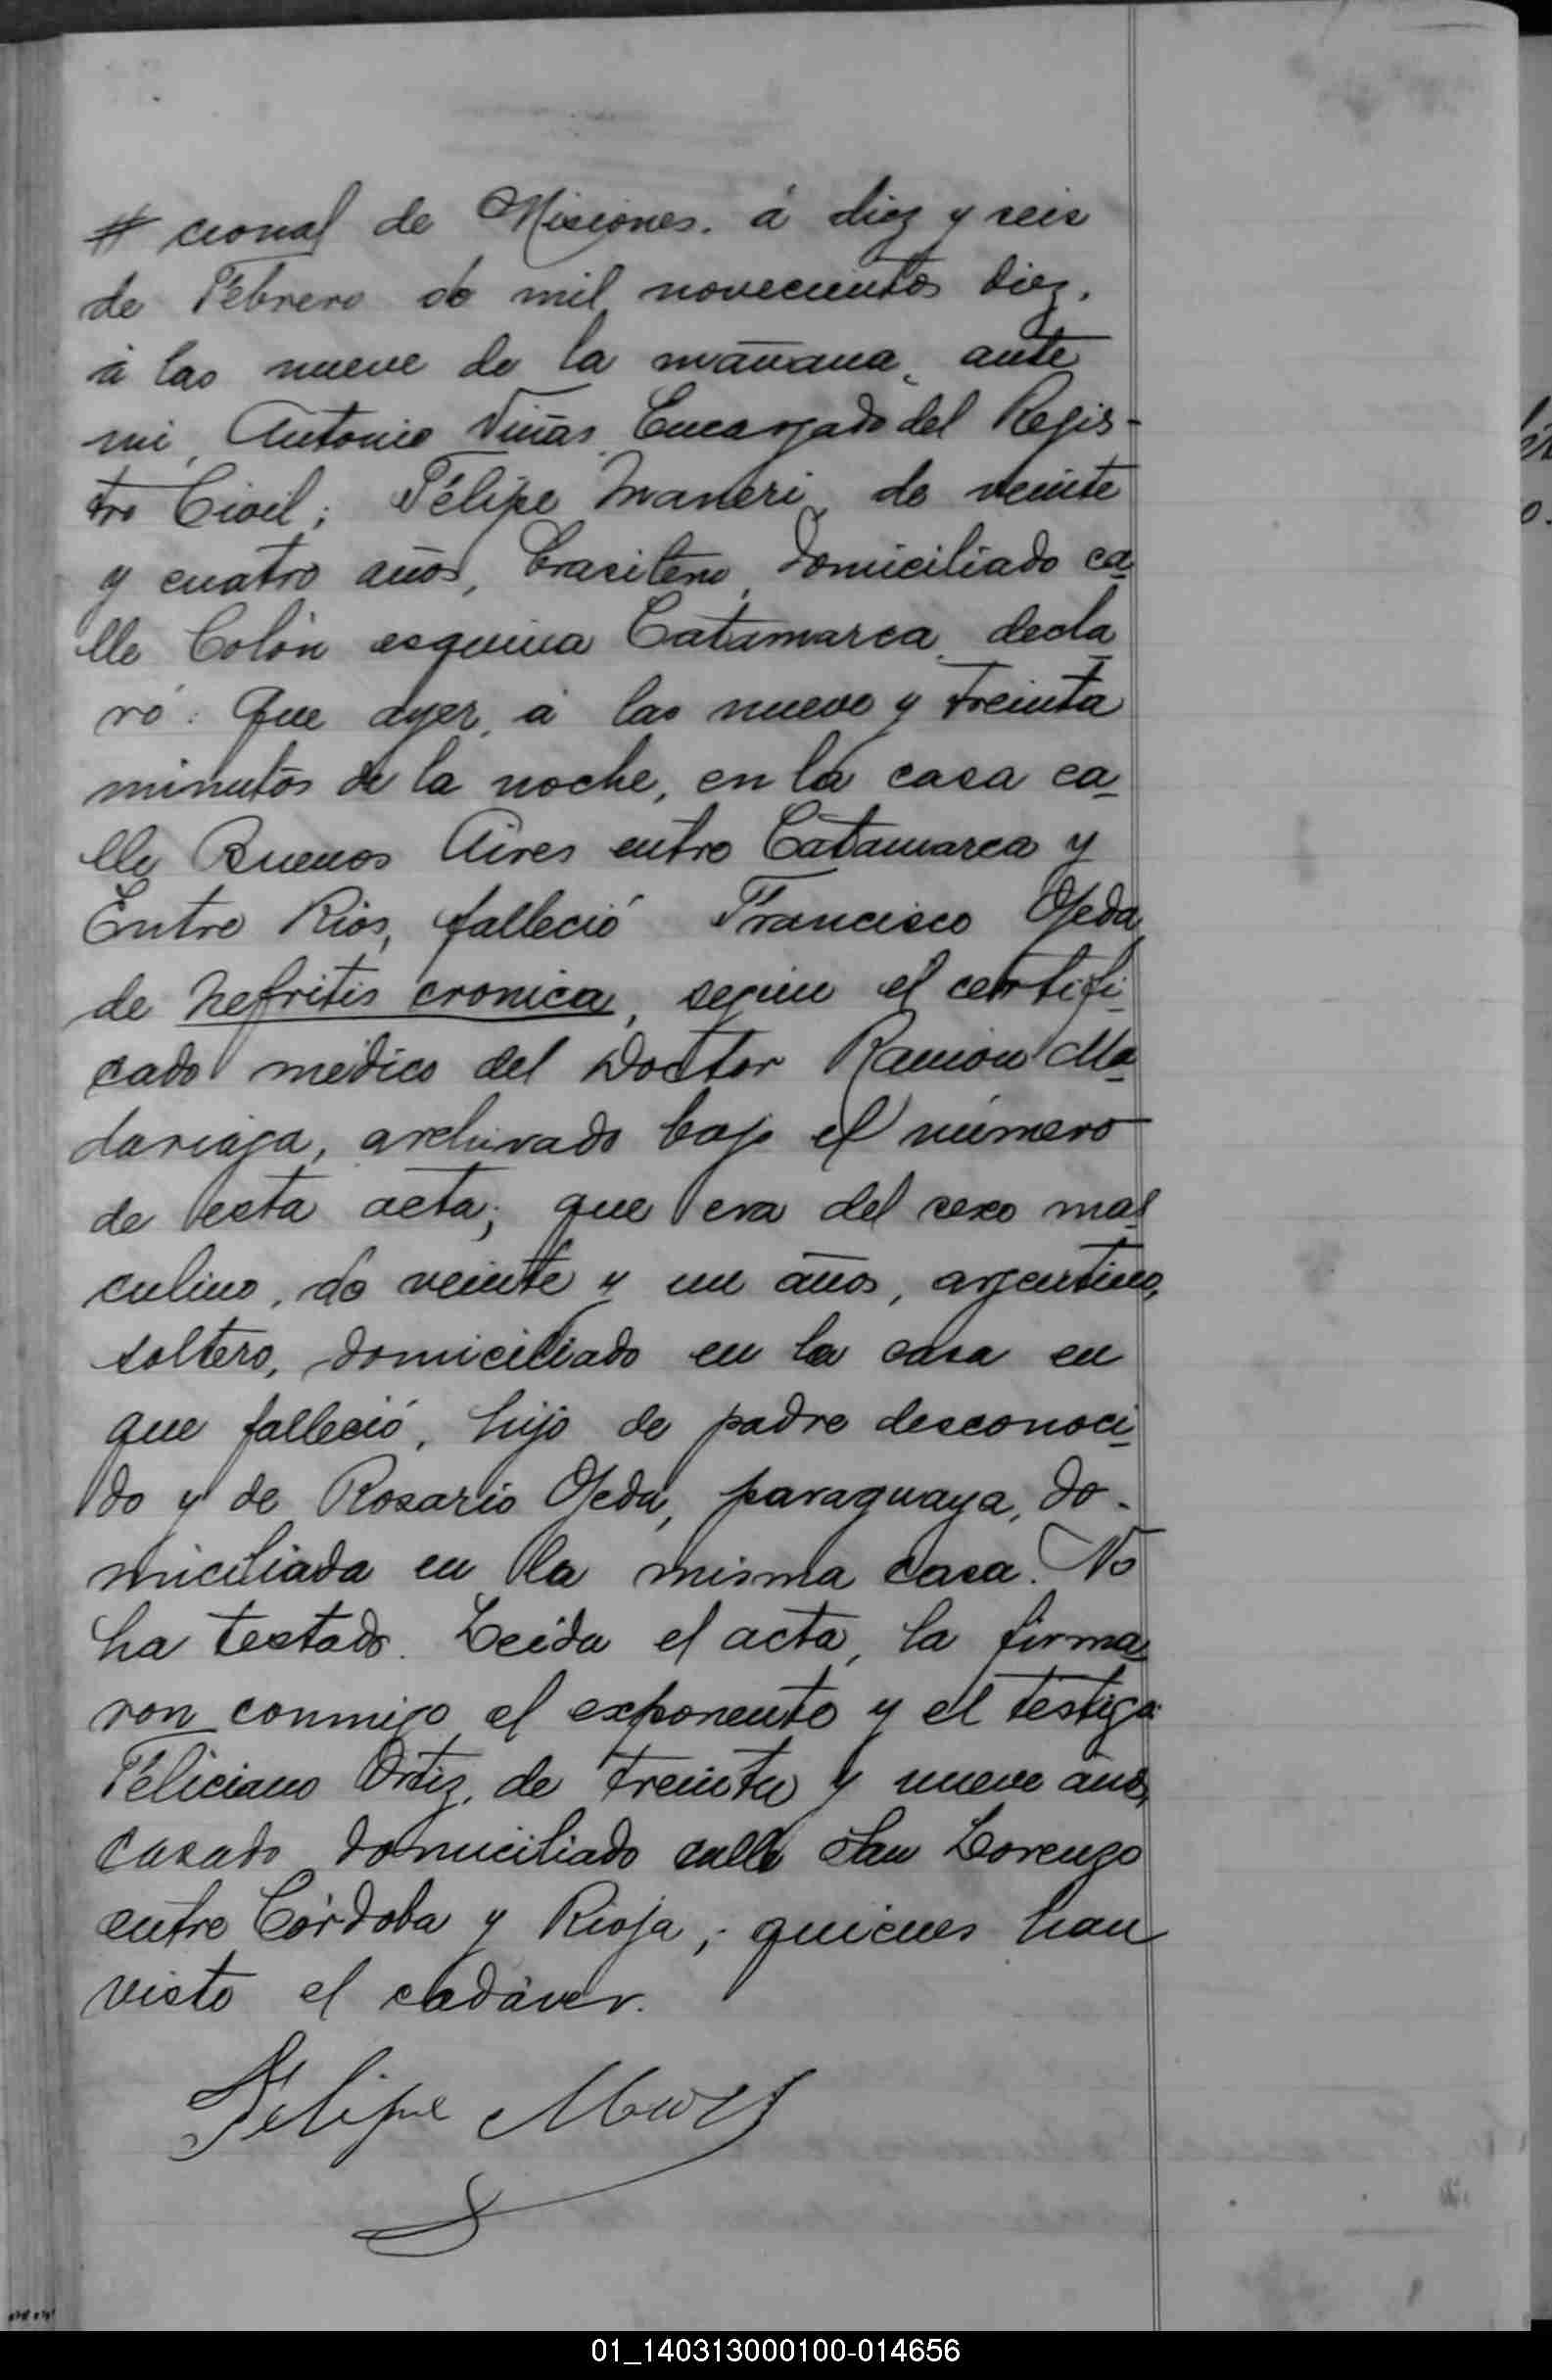 # cional de Misiones. á diez y seis
de Febrero de mil novecientos diez,
á las nueve de la mañana, ante
mi, Antonio Viñas, Encargado del Regis-
tro Civil; Felipe Maneri, de veinte
y cuatro años, brasileno, domiciliado ca_
lle Colón esquina Catamarca, decla_
ró: Que ayer, á las nueve y treinta
minutos de la noche, en la casa ca_
lle Buenos Aires entre Catamarca y
Entre Rios, falleció Francisco Ojeda,
de nefritis cronica, segun el certifi_
cado médico del Doctor Ramón Ma_
dariaga, archivado bajo el número
de esta acta; que era del sexo mas_
culino, de veinte y un años, argentino,
soltero, domiciliado en la casa en
que falleció, hijo de padre desconoci_
do y de Rosario Ojeda, paraguaya, do-
miciliada en la misma casa. No
ha testado. Leida el acta, la firma_
ron conmigo el exponente y el testigo
Feliciano Ortiz, de treinta y nueve años,
casado, domiciliado calle San Lorenzo
entre Córdoba y Rioja; quienes han
visto el cadáver.
Felipe
01_140313000100-014656